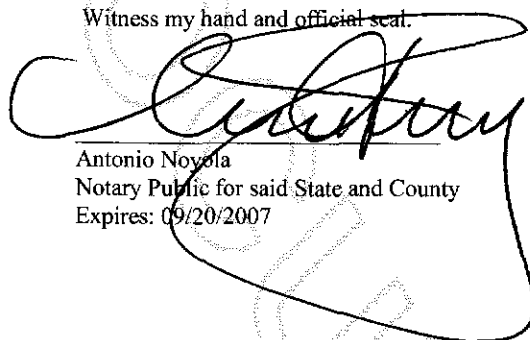 Witness my hand and official seal.
Antonio Noyola
Notary Public for said State and County
Expires: 09/20/2007